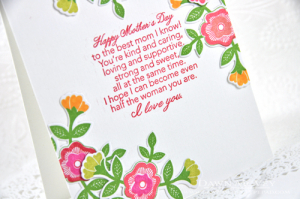 Happy Mother's Day
to the best mom I know!
You're kind and caring,
loving and supportive
strong and sweet,
all at the same time.
I hope I can become even
half the woman you are.
I love you.